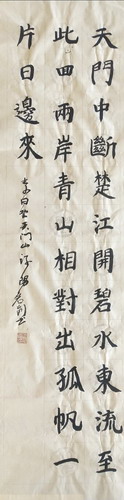 天門中斷楚江開碧水東流至
此回兩岸青山相對出孤帆一
片日邊來
李白望天門山詩